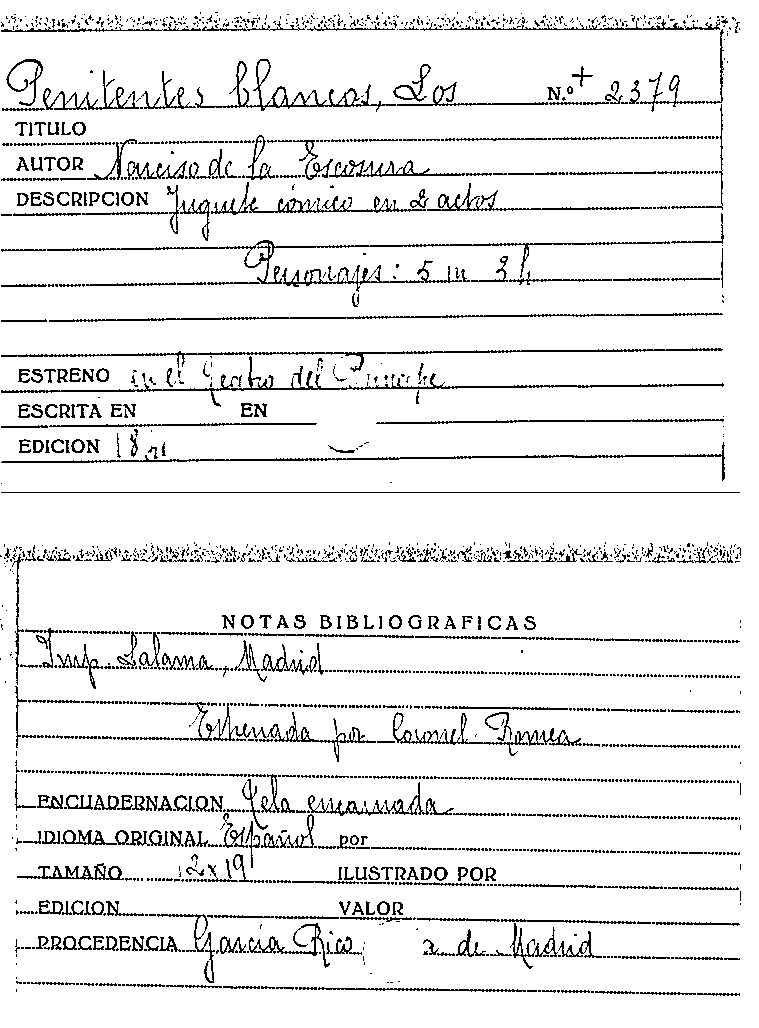 Penitentes blancos, Los N.º + 2379
TITULO
AUTOR Narciso de la Escosura
DESCRIPCION Juguete cómico en 2 actos
Personajes: 5 m 3 h
ESTRENO en el Teatro del Principe
ESCRITA EN EN
EDICION 18
NOTAS BIBLIOGRAFICAS
Imp. Lalama, Madrid
Estrenada por Coronel. Romea
ENCUADERNACION Tela encarnada
IDIOMA ORIGINAL Español por
TAMAÑO 12x19 ILUSTRADO POR
EDICION VALOR
PROCEDENCIA García Rico, de Madrid